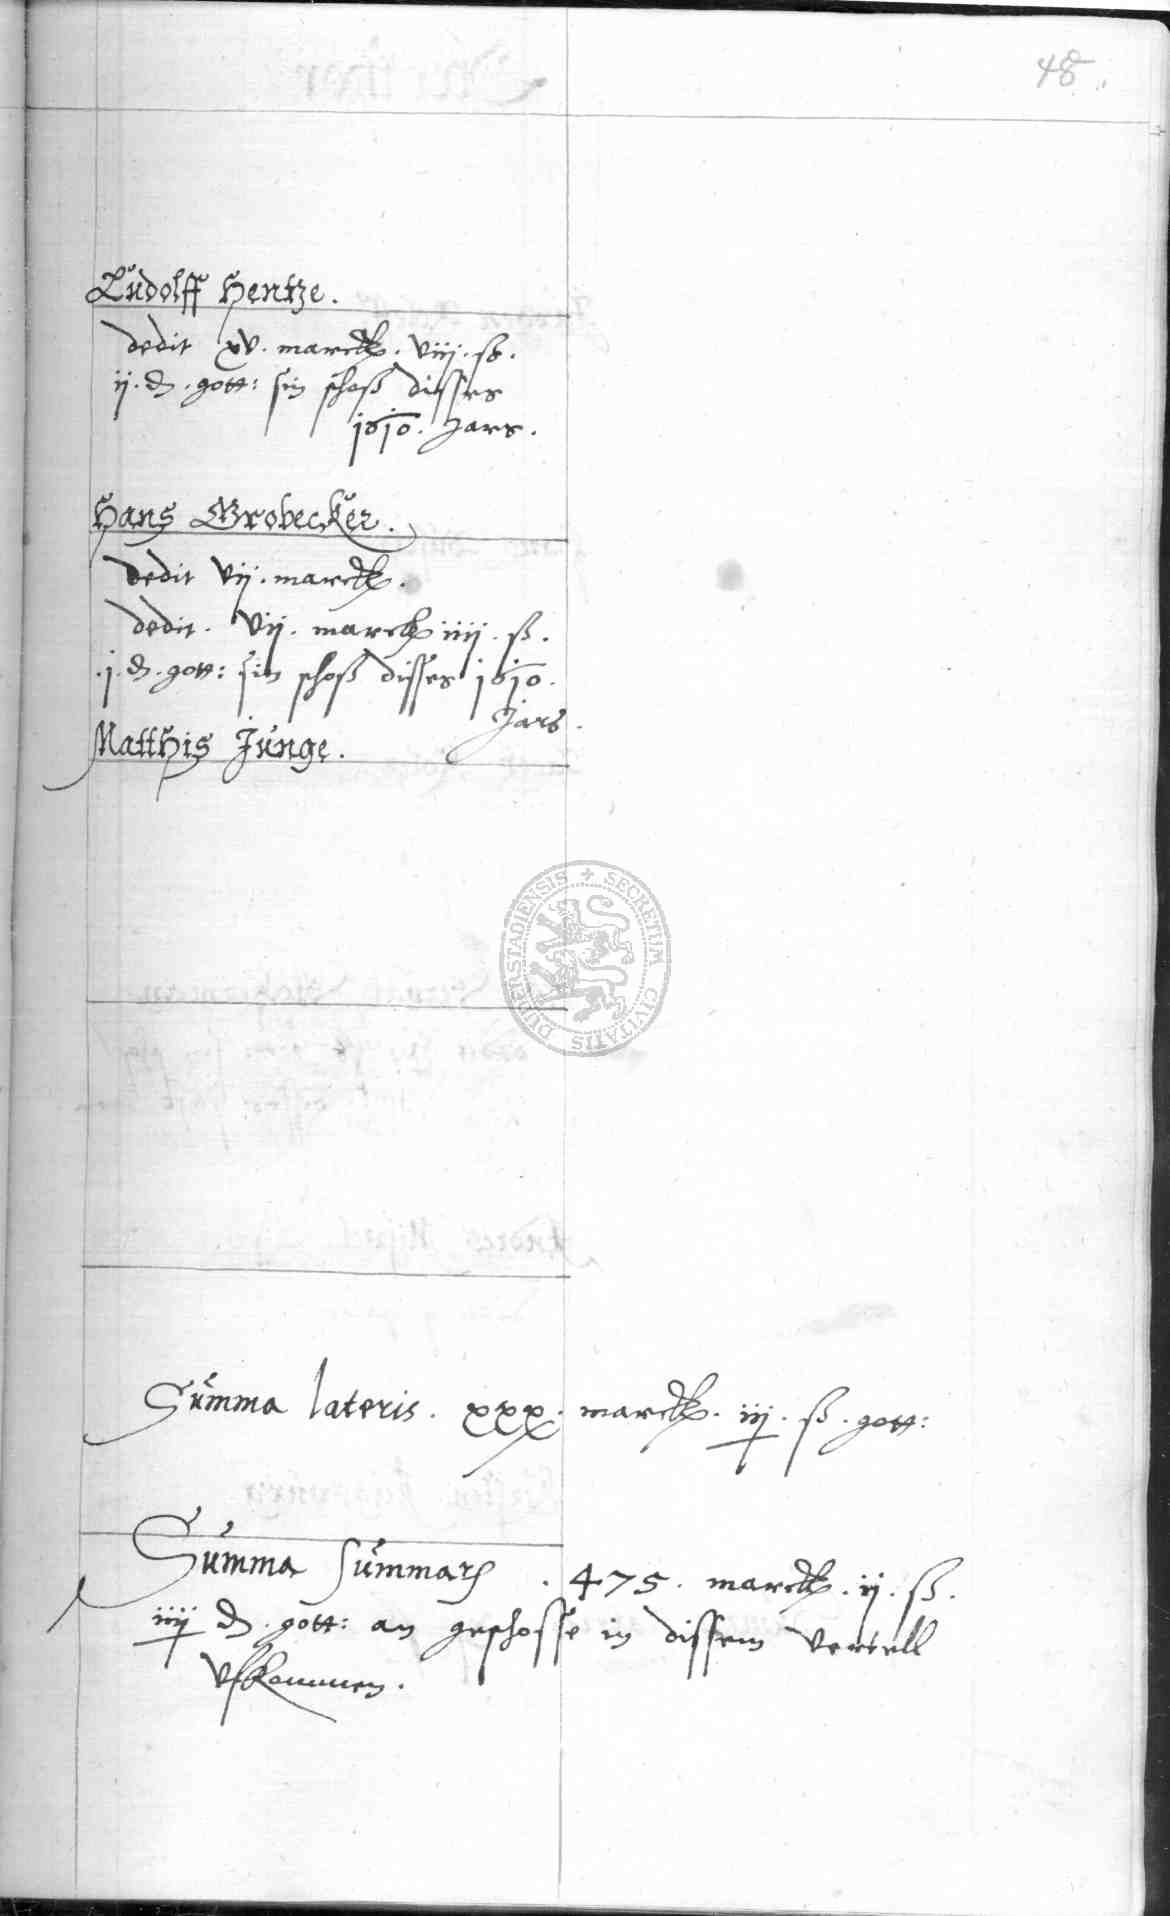 48.
Ludolff Hentze.
dedit xv. marck. viij. ß.
ij. d. gott: sin schoß disses
1610. Jars.
Hans Grobecker.
dedit vij. marck.
dedit. vij. marck iiij. ß.
.j. d. gott: sin schoß disses 1610.
Jars.
Matthis Junge.
DUDERSTADIENSIS + SECRETUM CIVITATIS
Summa lateris. xxx. marck. iij. ß. gott:
Summa summarum. 475. marck. ij. ß.
iiij d. gott: an geschosse in dissem vertell
uffkommen.